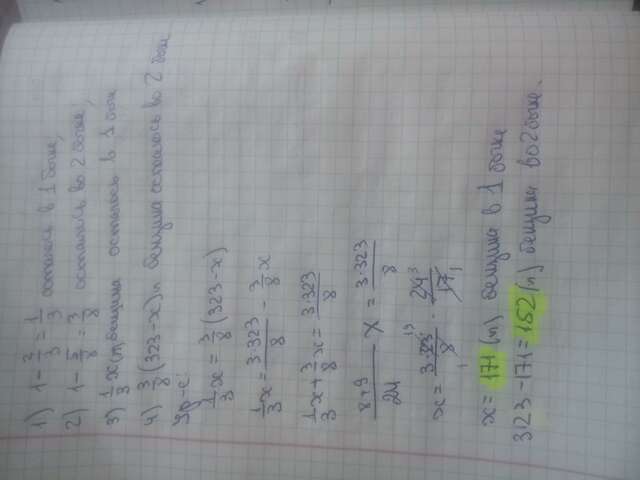 1) 1 - 2/3 = 1/3 осталось в 1 бочке,
2) 1 - 5/8 = 3/8 осталось во 2 бочке,
3) 1/3 x (л) бензина осталось в 1 бочке
4) 3/8 (323 - x) л бензина осталось во 2 бочке
Ур-е:
1/3 x = 3/8 (323 - x)
1/3 x = 3·323/8 - 3/8 x
1/3 x + 3/8 x = 3·323/8
8+9/24 x = 3·323/8
x = 3·323/8 · 24/17
19 3 1 1
x = 171 (л) бензина в 1 бочке
323 - 171 = 152 (л) бензина во 2 бочке.